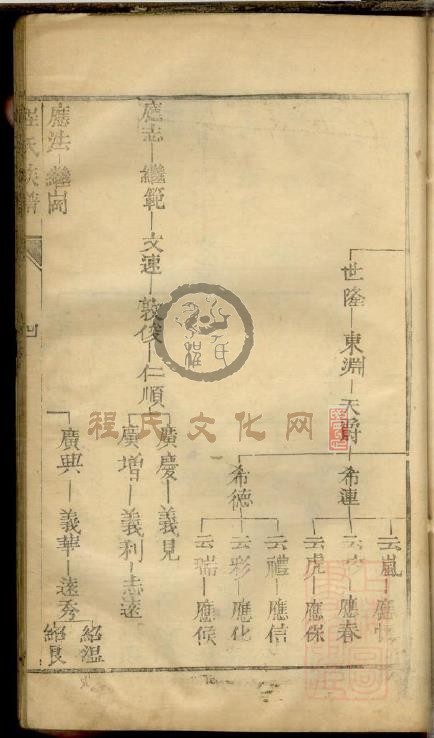 世隆 東淵 天爵 希連
云嵐
應春
云虎 應保
希德
云禮 應信
云彩 應化
云瑞 應候
應志 繼範 文速 敦俊 仁順
廣慶 義見
廣增 義利 志遠
應法 繼尚
廣興 義華 遠秀
紹溫
紹良
程氏族譜
程氏文化网